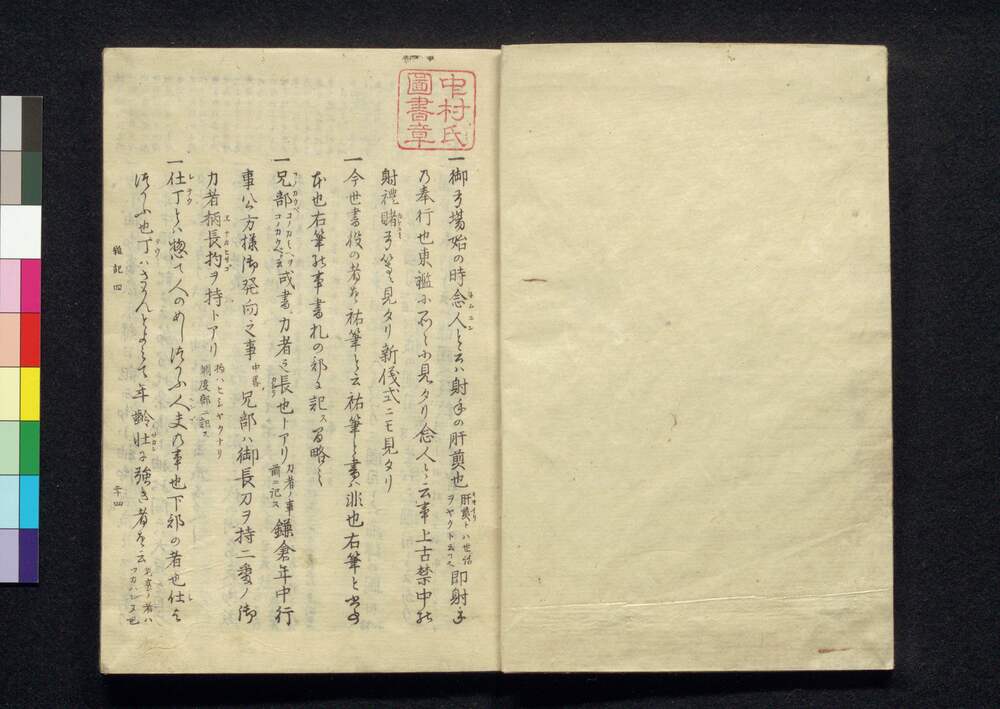 中村氏
圖書章
一御弓場始の時念人と云ハ射手の肝煎也肝煎トハ世話ヲヤク人ト云フ也即射手
乃奉行也東鑑小所々小見タリ念人と云事上古禁中の
射禮賭弓等ニ見タリ新儀式ニモ見タリ
一今世書役の者を祐筆と云祐筆と書ハ非也右筆と書
本也右筆の事書札の部に記ス
一兄部コノカウベ或書ニ力者之長也トアリ力者ノ事前ニ記ス鎌倉年中行
事公方様御発向之事中畧兄部ハ御長刀ヲ持二番ノ御
力者柄長杓ヲ持トアリ杓ハヒシヤクナリ調度部ニ記ス
一仕丁とハ惣て人のめしつかふ人夫乃事也下部の者也仕は
つかふ也丁ハさかんとよミて年齢壮に強き者を云
雑記四